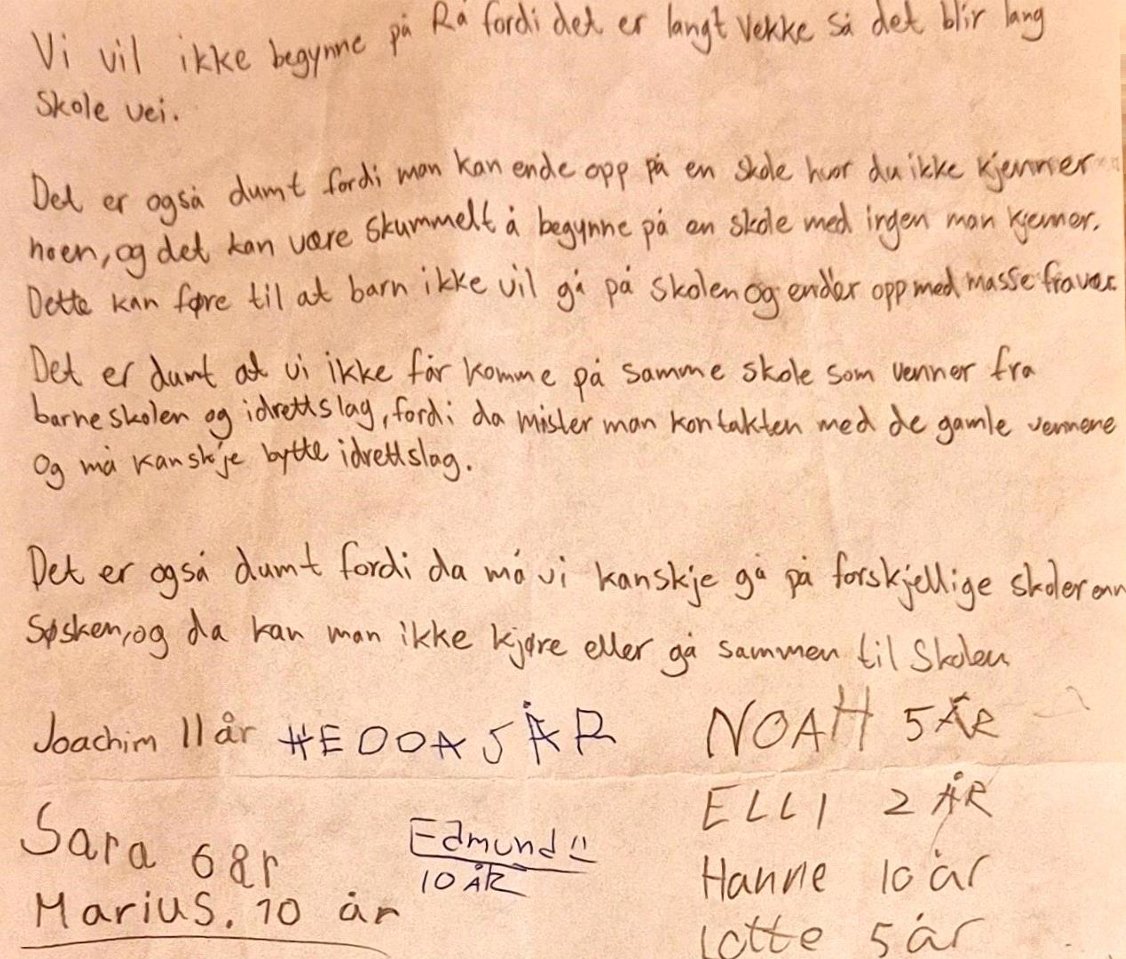 Vi vil ikke begynne på Rå fordi det er langt vekke så det blir lang
skole vei.
Det er også dumt fordi man kan ende opp på en skole hvor du ikke kjenner
noen, og det kan være skummelt å begynne på en skole med ingen man kjenner.
Dette kan føre til at barn ikke vil gå på skolen og ender opp med masse fravær.
Det er dumt at vi ikke får komme på samme skole som venner fra
barneskolen og idrettslag, fordi da mister man kontakten med de gamle vennene
og må kanskje bytte idrettslag.
Det er også dumt fordi da må vi kanskje gå på forskjellige skoler enn
søsken, og da kan man ikke kjøre eller gå sammen til skolen
Joachim 11 år HEDDA 5 ÅR NOAH 5 ÅR
ELLI 2 ÅR
Sara 6 år Edmund !!
10 ÅR
Hanne 10 år
Marius. 10 år
Lotte 5 år